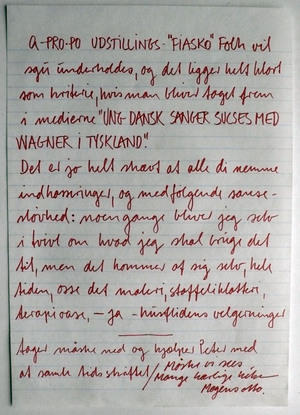 A-PRO-PO UDSTILLINGS-"FIASKO" Folk vil
sgu underholdes, og det ligger helt klart
som kriterie, hvis man bliver taget frem
i medierne "UNG DANSK SANGER SUCSES MED
WAGNER I TYSKLAND".
Det er jo helt skævt at alle di nemme
indkasseringer, og medfølgende sanse-
sløvhed: noen gange bliver jeg selv
i tvivl om hvad jeg skal bruge det
til, men det kommer af sig selv, hele
tiden, osse det maleri, staffeliklatteri,
terapioase, – ja – husflidens velgerninger
tager måske ned og hjælper Peter med
at samle tidsskriftet / Måske vi sees
Mange kærlige
Mogens otto.